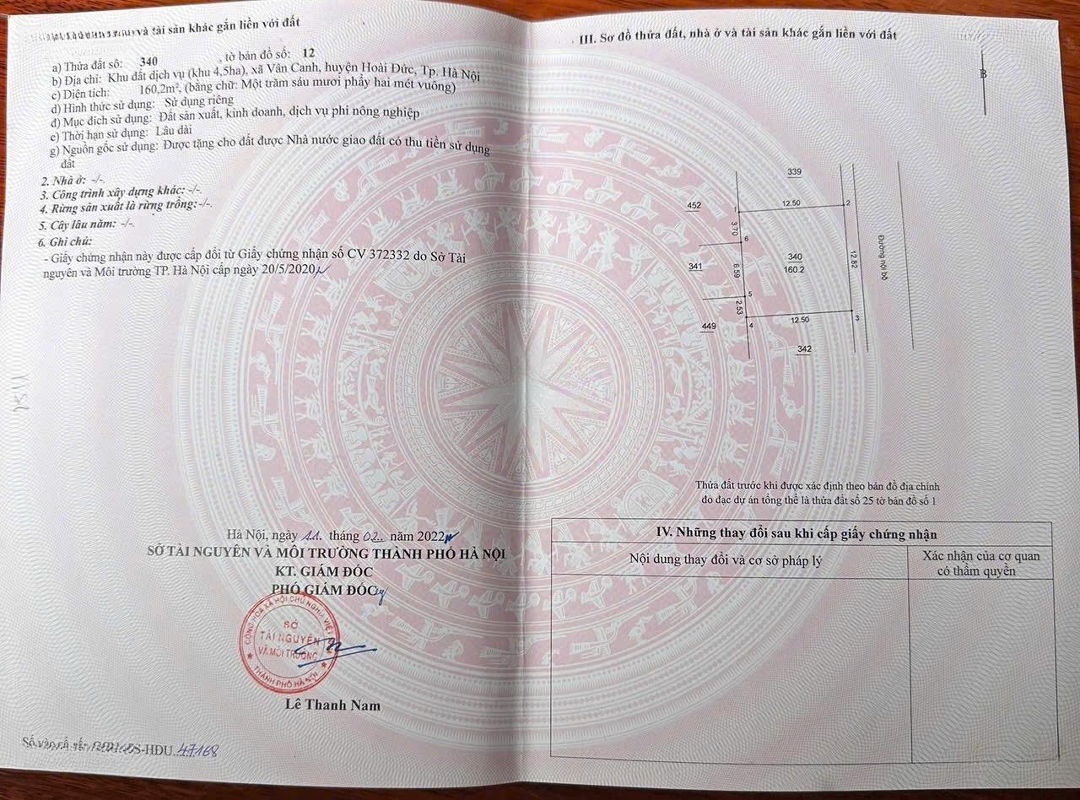 và tài sản khác gắn liền với đất
a) Thửa đất số: 340 , tờ bản đồ số: 12
b) Địa chỉ: Khu đất dịch vụ (khu 4,5ha), xã Vân Canh, huyện Hoài Đức, Tp. Hà Nội
c) Diện tích: 160,2m², (bằng chữ: Một trăm sáu mươi phẩy hai mét vuông)
d) Hình thức sử dụng: Sử dụng riêng
đ) Mục đích sử dụng: Đất sản xuất, kinh doanh, dịch vụ phi nông nghiệp
e) Thời hạn sử dụng: Lâu dài
g) Nguồn gốc sử dụng: Được tặng cho đất được Nhà nước giao đất có thu tiền sử dụng
đất
2. Nhà ở: -/-.
3. Công trình xây dựng khác: -/-.
4. Rừng sản xuất là rừng trồng:-/-.
5. Cây lâu năm: -/-.
6. Ghi chú:
- Giấy chứng nhận này được cấp đổi từ Giấy chứng nhận số CV 372332 do Sở Tài
nguyên và Môi trường TP. Hà Nội cấp ngày 20/5/2020
Hà Nội, ngày 11 tháng 02 năm 2022
SỞ TÀI NGUYÊN VÀ MÔI TRƯỜNG THÀNH PHỐ HÀ NỘI
KT. GIÁM ĐỐC
PHÓ GIÁM ĐỐC
CỘNG HÒA XÃ HỘI CHỦ NGHĨA VIỆT
SỞ
TÀI NGUYÊN
VÀ MÔI TRƯỜNG
THÀNH PHỐ HÀ NỘI
Lê Thanh Nam
-HDU 47168
III. Sơ đồ thửa đất, nhà ở và tài sản khác gắn liền với đất
B
339
452
1
12.50
2
3.70
6
340
160.2
12.82
Đường nội bộ
341
6.59
5
2.53
449
4
12.50
3
342
Thửa đất trước khi được xác định theo bản đồ địa chính
đo đạc dự án tổng thể là thửa đất số 25 tờ bản đồ số 1
IV. Những thay đổi sau khi cấp giấy chứng nhận
Nội dung thay đổi và cơ sở pháp lý
Xác nhận của cơ quan
có thẩm quyền